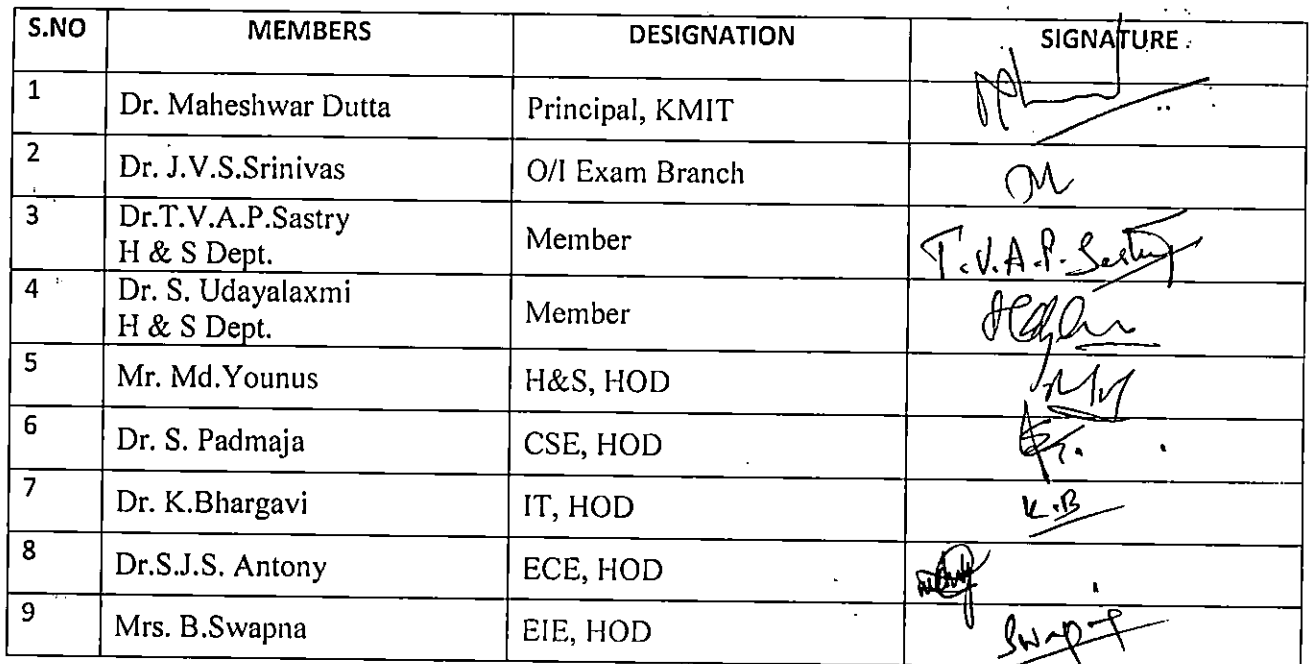 S.NO MEMBERS DESIGNATION SIGNATURE
1 Dr. Maheshwar Dutta Principal, KMIT
2 Dr. J.V.S.Srinivas O/I Exam Branch
3 Dr.T.V.A.P.Sastry
H & S Dept. Member T.V.A.P. Sastry
4 Dr. S. Udayalaxmi
H & S Dept. Member
5 Mr. Md.Younus H&S, HOD
6 Dr. S. Padmaja CSE, HOD
7 Dr. K.Bhargavi IT, HOD K.B
8 Dr.S.J.S. Antony ECE, HOD
9 Mrs. B.Swapna EIE, HOD Swapna